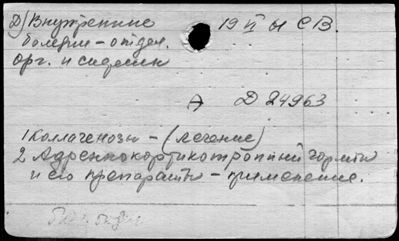 Д) Внутренние 19 VI ы СВ.
болезни - отдел.
орг. и системы
А Д 24963
1 Коллагенозы - (лечение)
2 Адренокортикотропный гормон
и его препараты - применение.